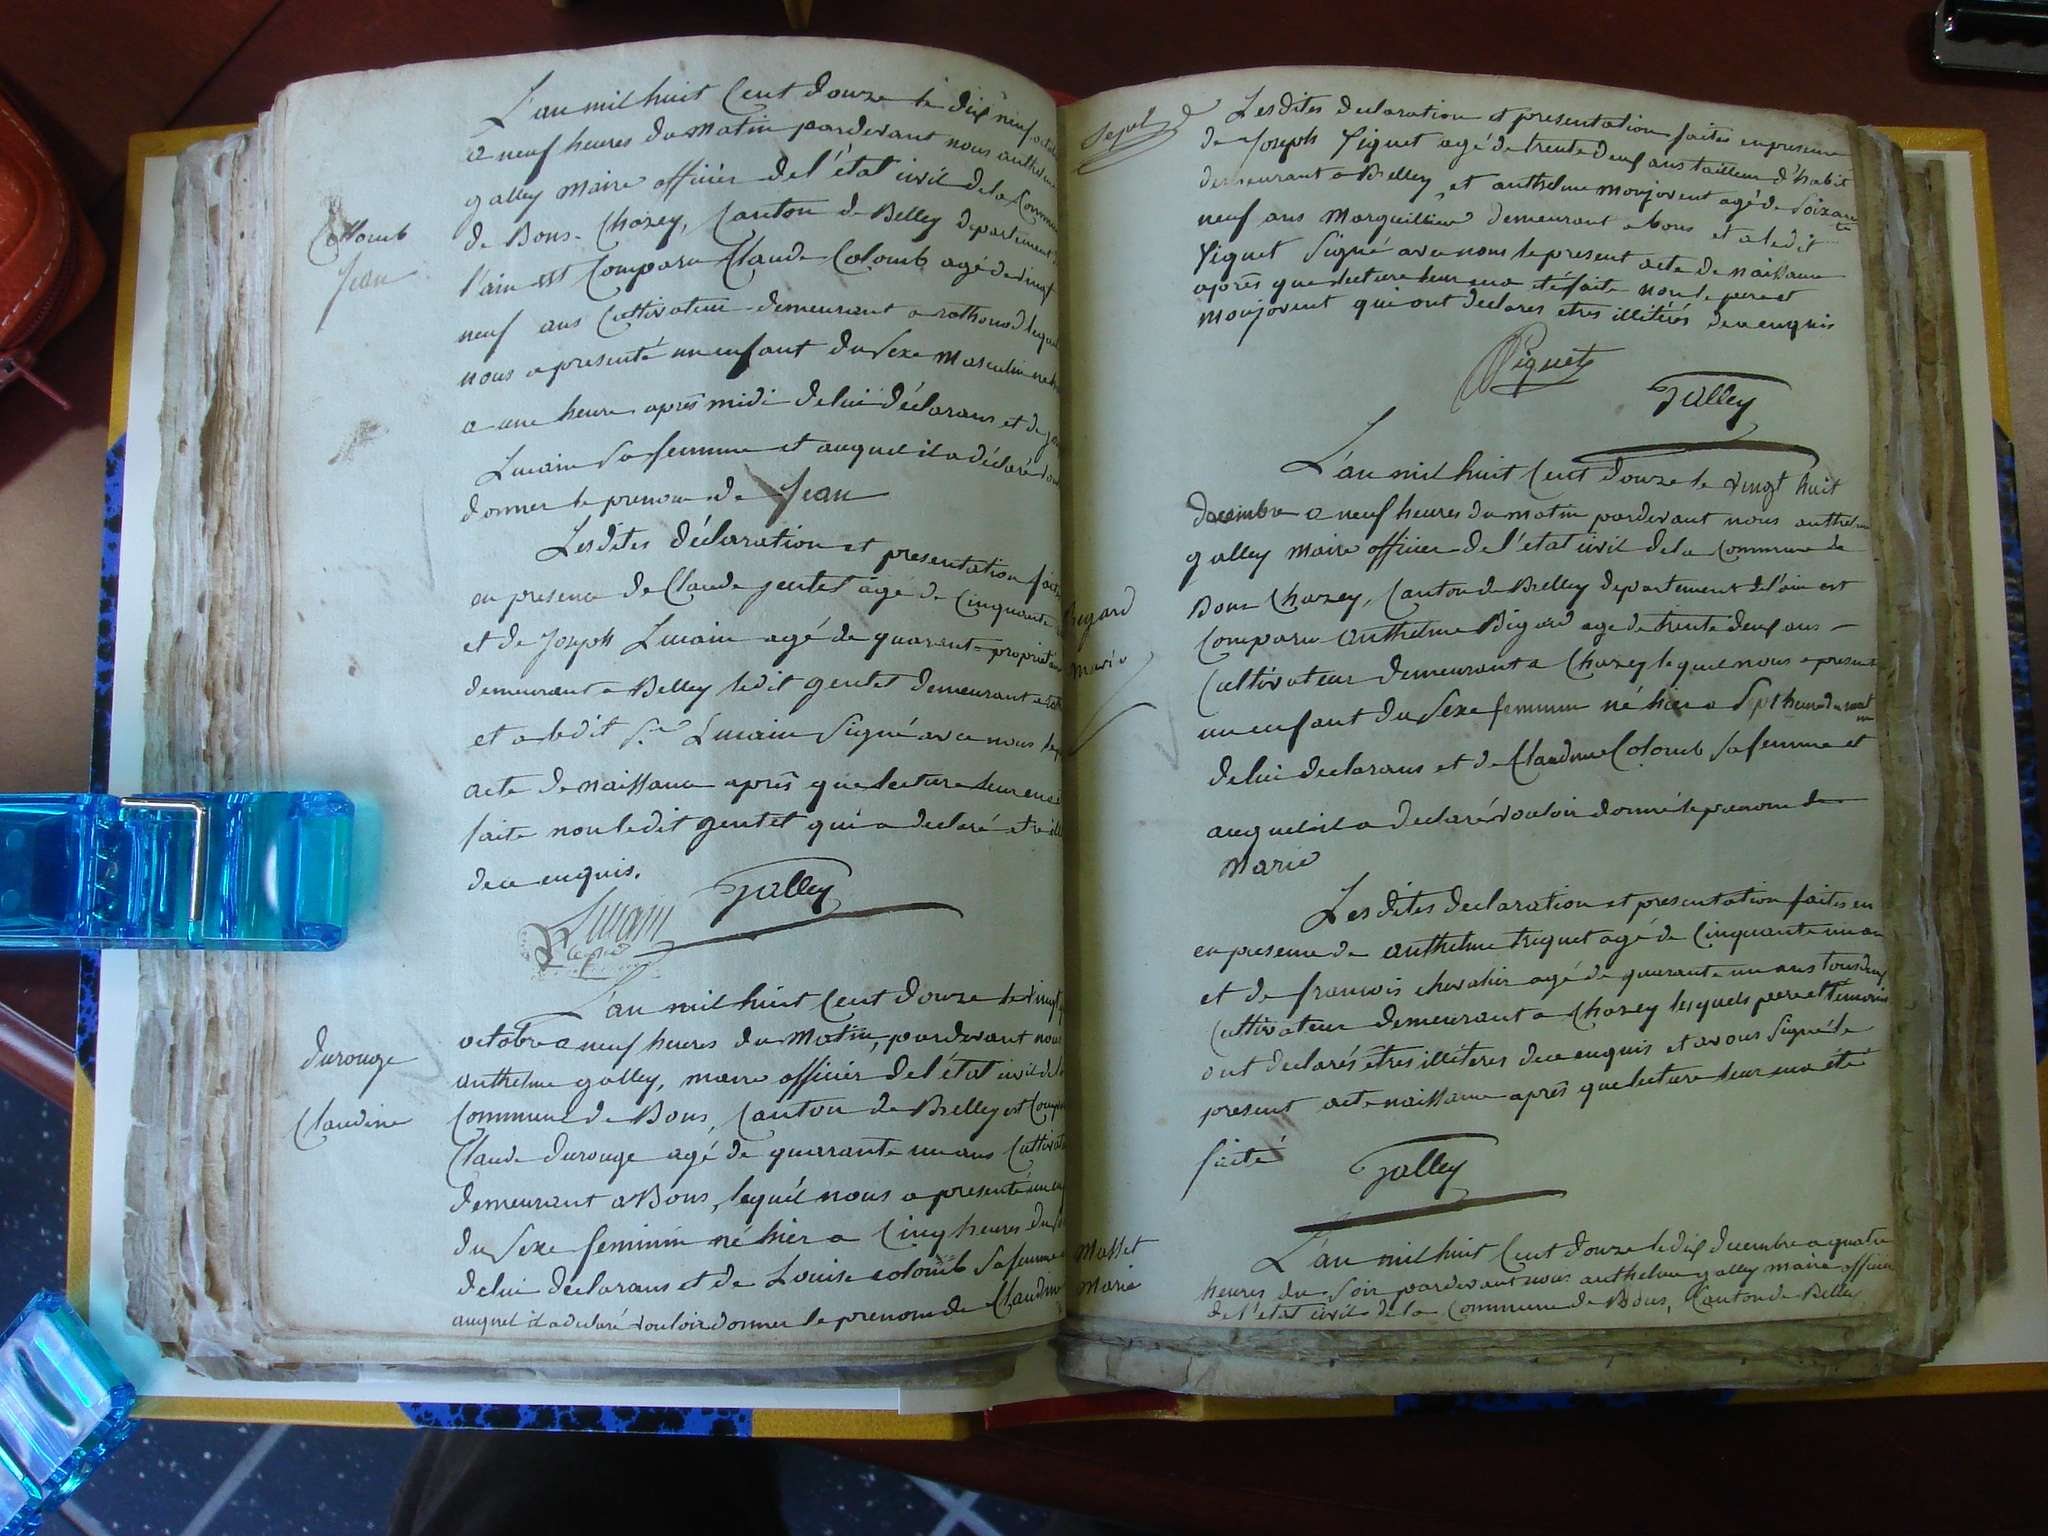 L'an mil huit Cent douze le dix neuf octo
a neuf heures du matin pardevant nous anthelme
galley maire officier de l'état civil de la Commu
de Bons Chazey, Canton de Belley departement d
l'ain est Comparu Claude Colomb agé de vingt
neuf ans Cultivateur demeurant a rothonod lequel
nous a presenté un enfant du Sexe masculin né
a une heure après midi de lui déclarans et de
Luain Sa femme et auquel il a déclaré
donner le prenom de Jean
Collomb
Jean
Lesdites déclaration et presentation faite
en presence de Claude gentet agé de Cinquante
et de Joseph Luain agé de quarante proprietaire
demeurant a Belley ledit gentet demeurant a
et a ledit Sr Luain Signé avec nous le
acte de naissance après que lecture leur en e
faite non ledit gentet qui a declaré etre ill
de ce enquis.
Luain
Galley
L'an mil huit Cent douze le vingt
octobre a neuf heures du matin, pardevant nous
anthelme galley, maire officier de l'état civil de la
Commune de Bons, Canton de Belley est Comp
Claude durouge agé de quarante un ans Cultivat
demeurant a Bons, lequel nous a presenté un en
du Sexe feminin né hier a Cinq heures du
de lui declarans et de Louise colomb Sa femme
auquel il a declaré vouloir donner le prenom de Claudine
durouge
Claudine
Lesdites declaration et presentation faites en presence
de Joseph Piguet agé de trente deux ans tailleur d'habit
demeurant a Belley, et anthelme monjovent agé de Soixante
neuf ans Marguillier demeurant a bons et a ledit
Piguet Signé avec nous le present acte de naissance
après que lecture leur en a eté faite non le pere et
monjovent qui ont declarés etres illitérés de ce enquis
Piguet
Galley
L'an mil huit Cent douze le vingt huit
decembre a neuf heures du matin pardevant nous anthelme
galley maire officier de l'état civil de la Commune de
Bons Chazey, Canton de Belley departement de l'ain est
Comparu anthelme Bigard age de trente deux ans
Cultivateur demeurant a Chazey lequel nous a presenté
un enfant du Sexe feminin né hier a Sept heures du matin
de lui declarans et de Claudine Colomb Sa femme et
auquel il a declaré vouloir donné le prenom de
Marie
Bigard
Marie
Lesdites declaration et presentation faites en
en presence de anthelme triquet agé de Cinquante un an
et de francois chevalier agé de quarante un ans tous deux
Cultivateur demeurant a Chazey lesquels pere et temoins
ont declarés etres illéteres de ce enquis et avons Signé le
present acte naissance après que lecture leur en a été
faite
Galley
L'an mil huit Cent douze le dix decembre a quatre
heures du Soir pardevant nous anthelme galley maire officier
de l'etat civil de la Commune de Bons, Canton de Belley
Masset
Marie